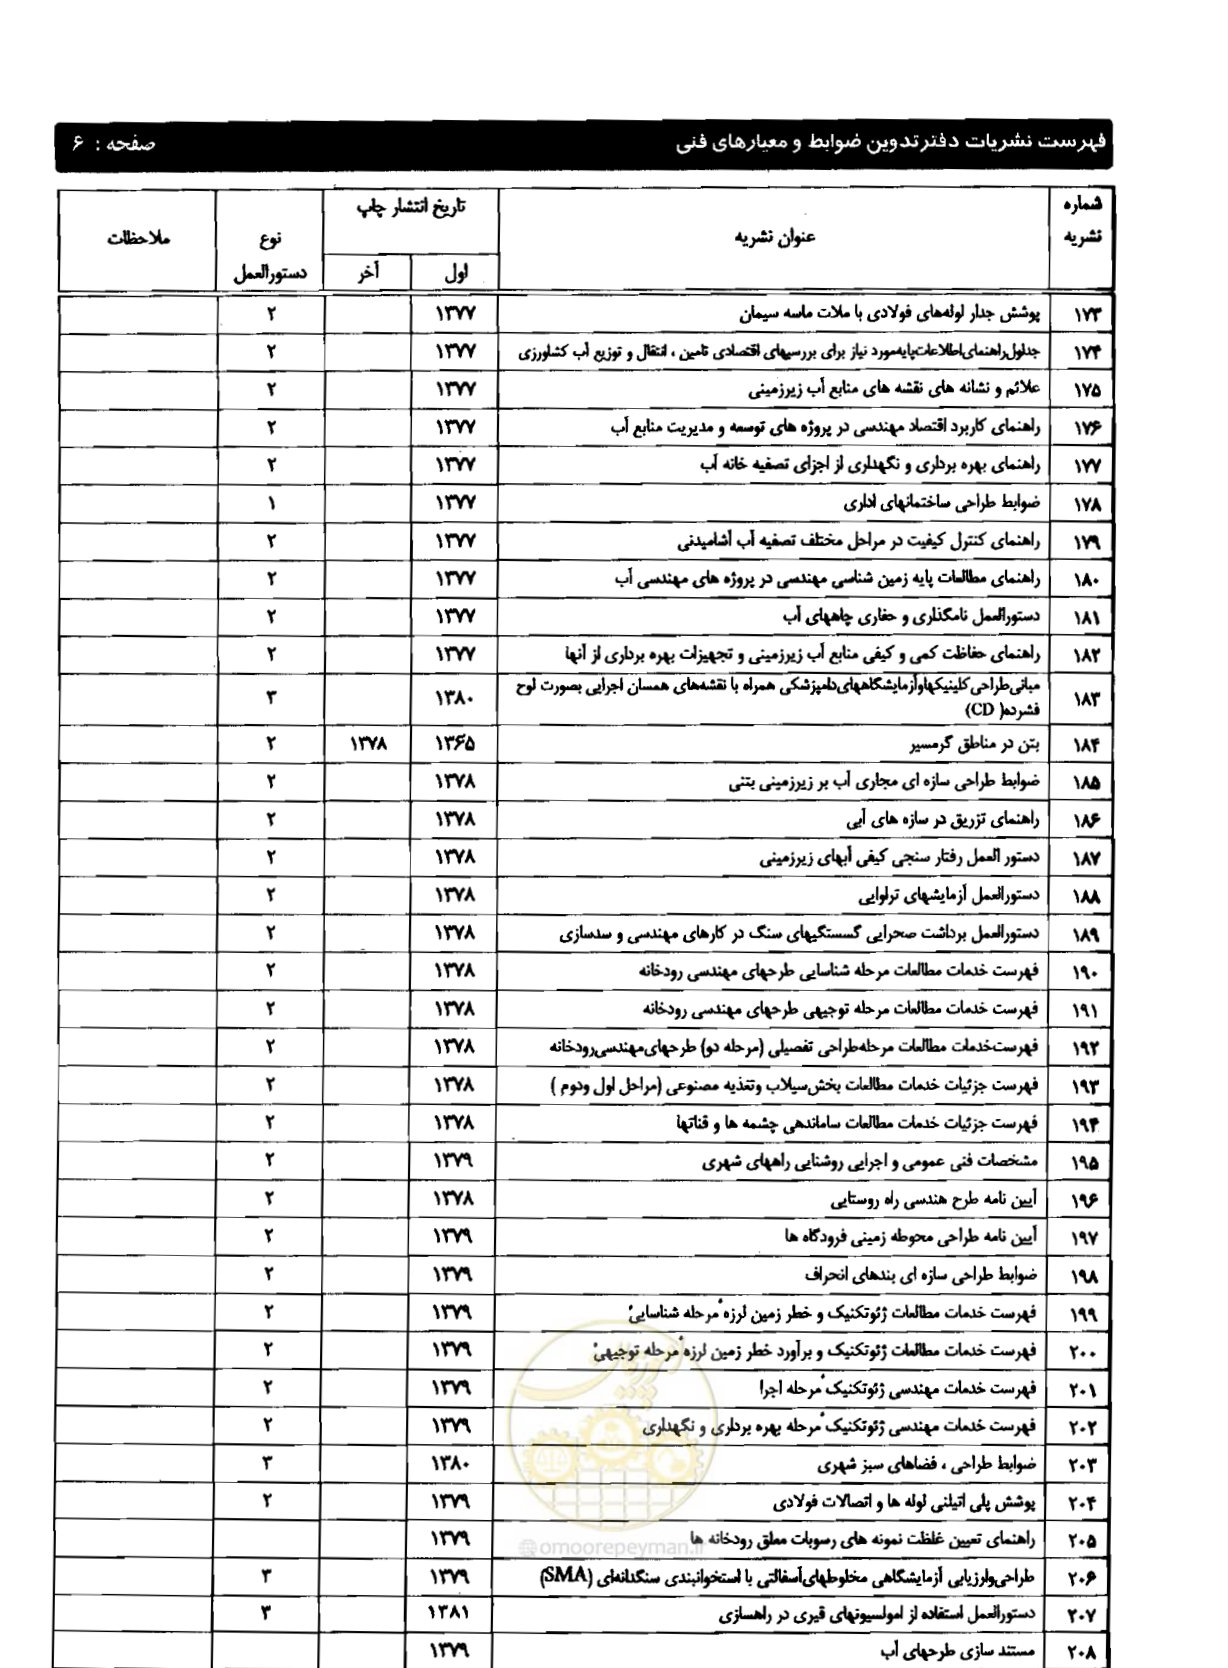 فهرست نشریات دفترتدوین ضوابط و معیارهای فنی صفحه : ۶
شماره نشریه عنوان نشریه تاریخ انتشار چاپ نوع دستورالعمل ملاحظات
اول آخر
۱۷۳ پوشش جدار لوله‌های فولادی با ملات ماسه سیمان ۱۳۷۷ ۲
۱۷۴ جداول‌راهنمای‌اطلاعات‌پایه‌مورد نیاز برای بررسیهای اقتصادی تامین ، انتقال و توزیع آب کشاورزی ۱۳۷۷ ۲
۱۷۵ علائم و نشانه های نقشه های منابع آب زیرزمینی ۱۳۷۷ ۲
۱۷۶ راهنمای کاربرد اقتصاد مهندسی در پروژه های توسعه و مدیریت منابع آب ۱۳۷۷ ۲
۱۷۷ راهنمای بهره برداری و نگهداری از اجزای تصفیه خانه آب ۱۳۷۷ ۲
۱۷۸ ضوابط طراحی ساختمانهای اداری ۱۳۷۷ ۱
۱۷۹ راهنمای کنترل کیفیت در مراحل مختلف تصفیه آب آشامیدنی ۱۳۷۷ ۲
۱۸۰ راهنمای مطالعات پایه زمین شناسی مهندسی در پروژه های مهندسی آب ۱۳۷۷ ۲
۱۸۱ دستورالعمل نامگذاری و حفاری چاههای آب ۱۳۷۷ ۲
۱۸۲ راهنمای حفاظت کمی و کیفی منابع آب زیرزمینی و تجهیزات بهره برداری از آنها ۱۳۷۷ ۲
۱۸۳ مبانی‌طراحی‌کلینیکهاوآزمایشگاههای‌دامپزشکی همراه با نقشه‌های همسان اجرایی بصورت لوح ۱۳۸۰ ۳
فشرده( CD)
۱۸۴ بتن در مناطق گرمسیر ۱۳۶۵ ۱۳۷۸ ۲
۱۸۵ ضوابط طراحی سازه ای مجاری آب بر زیرزمینی بتنی ۱۳۷۸ ۲
۱۸۶ راهنمای تزریق در سازه های آبی ۱۳۷۸ ۲
۱۸۷ دستور العمل رفتار سنجی کیفی آبهای زیرزمینی ۱۳۷۸ ۲
۱۸۸ دستورالعمل آزمایشهای تراوایی ۱۳۷۸ ۲
۱۸۹ دستورالعمل برداشت صحرایی گسستگیهای سنگ در کارهای مهندسی و سدسازی ۱۳۷۸ ۲
۱۹۰ فهرست خدمات مطالعات مرحله شناسایی طرحهای مهندسی رودخانه ۱۳۷۸ ۲
۱۹۱ فهرست خدمات مطالعات مرحله توجیهی طرحهای مهندسی رودخانه ۱۳۷۸ ۲
۱۹۲ فهرست‌خدمات مطالعات مرحله‌طراحی تفصیلی (مرحله دو) طرحهای‌مهندسی‌رودخانه ۱۳۷۸ ۲
۱۹۳ فهرست جزئیات خدمات مطالعات بخش‌سیلاب وتغذیه مصنوعی (مراحل اول ودوم ) ۱۳۷۸ ۲
۱۹۴ فهرست جزئیات خدمات مطالعات ساماندهی چشمه ها و قناتها ۱۳۷۸ ۲
۱۹۵ مشخصات فنی عمومی و اجرایی روشنایی راههای شهری ۱۳۷۹ ۲
۱۹۶ آیین نامه طرح هندسی راه روستایی ۱۳۷۸ ۲
۱۹۷ آیین نامه طراحی محوطه زمینی فرودگاه ها ۱۳۷۹ ۲
۱۹۸ ضوابط طراحی سازه ای بندهای انحراف ۱۳۷۹ ۲
۱۹۹ فهرست خدمات مطالعات ژئوتکنیک و خطر زمین لرزه"مرحله شناسایی" ۱۳۷۹ ۲
۲۰۰ فهرست خدمات مطالعات ژئوتکنیک و برآورد خطر زمین لرزه"مرحله توجیهی" ۱۳۷۹ ۲
۲۰۱ فهرست خدمات مهندسی ژئوتکنیک"مرحله اجرا ۱۳۷۹ ۲
۲۰۲ فهرست خدمات مهندسی ژئوتکنیک"مرحله بهره برداری و نگهداری ۱۳۷۹ ۲
۲۰۳ ضوابط طراحی ، فضاهای سبز شهری ۱۳۸۰ ۳
۲۰۴ پوشش پلی اتیلنی لوله ها و اتصالات فولادی ۱۳۷۹ ۲
۲۰۵ راهنمای تعیین غلظت نمونه های رسوبات معلق رودخانه ها ۱۳۷۹
omoorepeyman.ir
۲۰۶ طراحی‌وارزیابی آزمایشگاهی مخلوطهای‌آسفالتی با استخوانبندی سنگدانه‌ای (SMA) ۱۳۷۹ ۳
۲۰۷ دستورالعمل استفاده از امولسیونهای قیری در راهسازی ۱۳۸۱ ۳
۲۰۸ مستند سازی طرحهای آب ۱۳۷۹